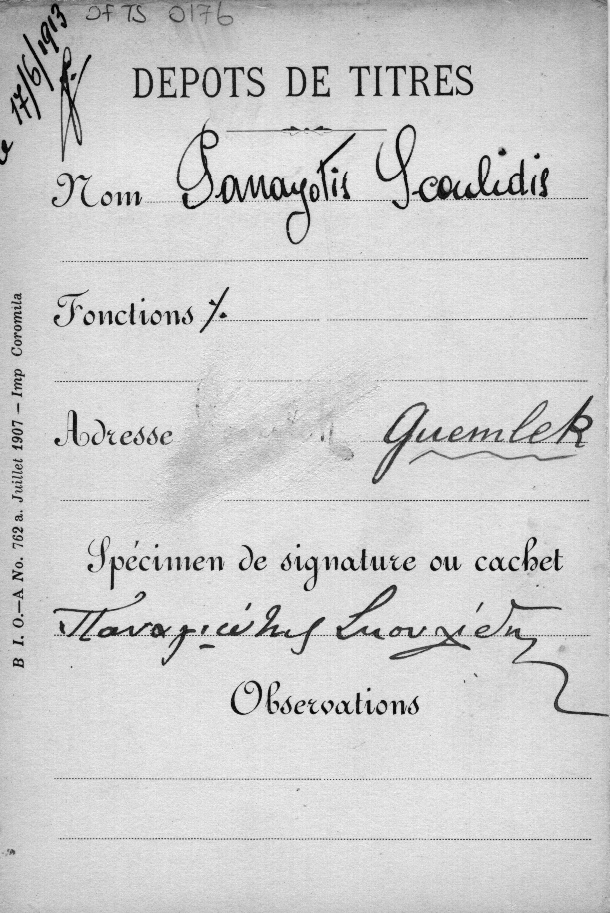 OFTS 0176
17/6/1913
DEPOTS DE TITRES
Nom Panayotis Scoulidis
Fonctions ٪
Adresse Guemlek
Spécimen de signature ou cachet
Παναγιώτης Σκουλίδης
Observations
B I. O.—A No. 762 a. Juillet 1907 — Imp Coromila